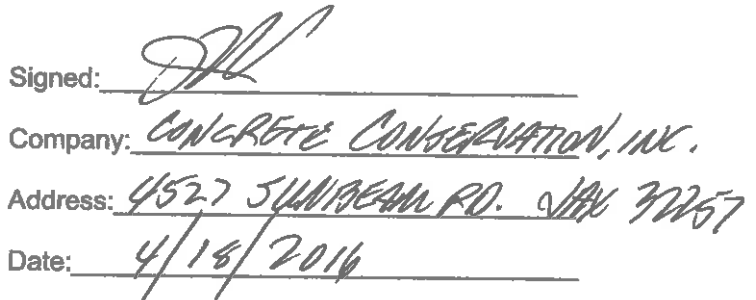 Signed:
Company: CONCRETE CONSERVATION, INC.
Address: 4527 SUNBEAM RD. JAX 32257
Date: 4/18/2016